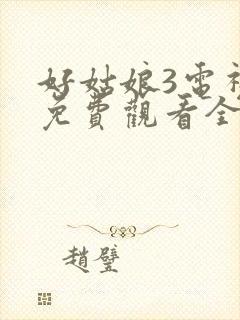 好姑娘3電視
免費觀看全
趙璧